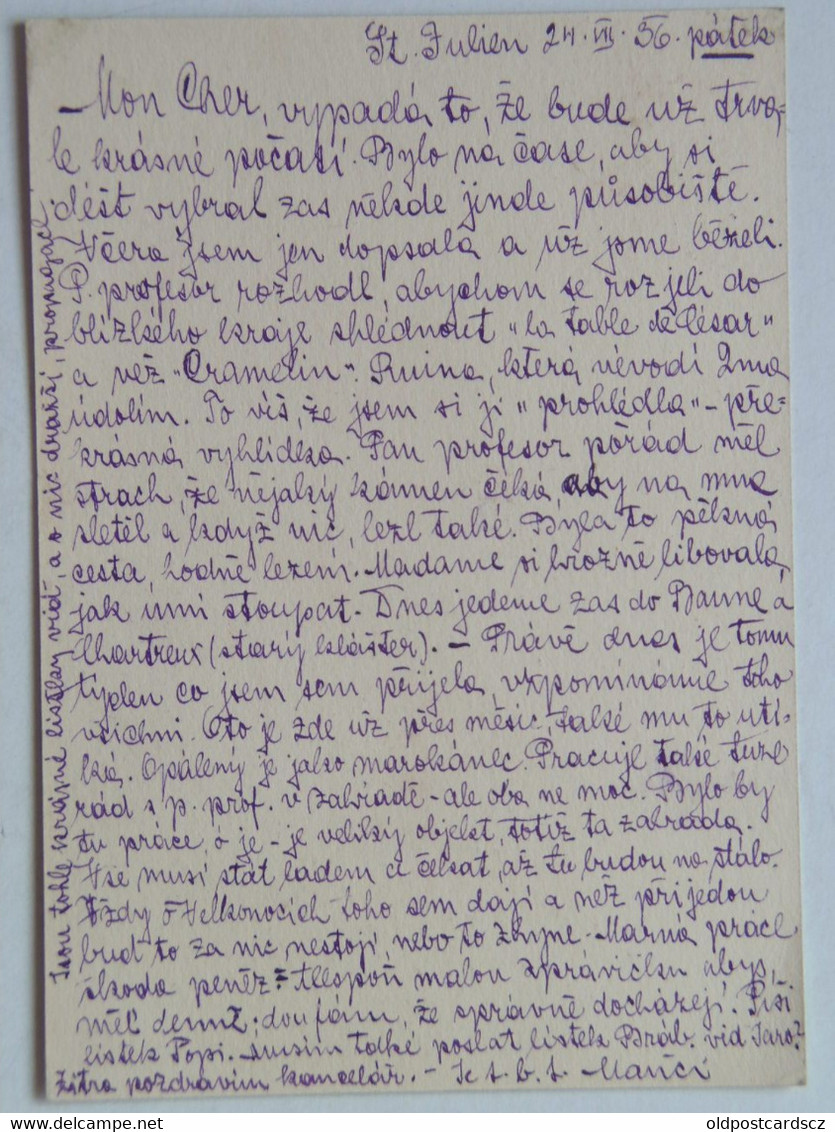 St. Julien 24. VII. 36. pátek
Mon Cher, vypadá to, že bude už trva-
le krásné počasí. Bylo na čase, aby si
déšť vybral zas někde jinde působiště.
Včera jsem jen dopsala a už jsme běželi.
P. profesor rozhodl, abychom se rozjeli do
blízkého kraje shlédnout "la table de César"
a věž "Cramelin". Ruina, která vévodí 2ma
údolím. To víš, že jsem si ji "prohlédla" - pře-
krásná vyhlídka. Pan profesor pořád měl
strach, že nějaký kámen čeká, aby na mne
sletěl a když nic, lezl také. Byla to pěkná
cesta, hodně lezení. Madame si hrozně libovala,
jak umí stoupat. Dnes jedeme zas do Baune à
Chartreux (starý klášter). - Právě dnes je tomu
týden co jsem sem přijela, vzpomínáme toho
všichni. Oto je zde už přes měsíc, také mu to utí-
ká. Opálený je jako marokánec. Pracuje také tuze
rád s p. prof. v zahradě - ale oba ne moc. Bylo by
tu práce, ó je - je veliký objekt, totiž ta zahrada.
Vše musí stát ladem a čekat, až tu budou na stálo.
Vždy o Velkonocích toho sem dají a než přijedou
buď to za nic nestojí, nebo to zhyne. Marná práce
škoda peněz. - alespoň malou zprávičku abys
měl denně; doufám, že správně docházejí. Piš
lístek Popi. musím také poslat lístek Bráb. vid Jaro?
Zítra pozdravím kancelář. - Je t. b. t. Mančí
Jsou tohle krásné lístky viď, a o nic dražší, propagační.